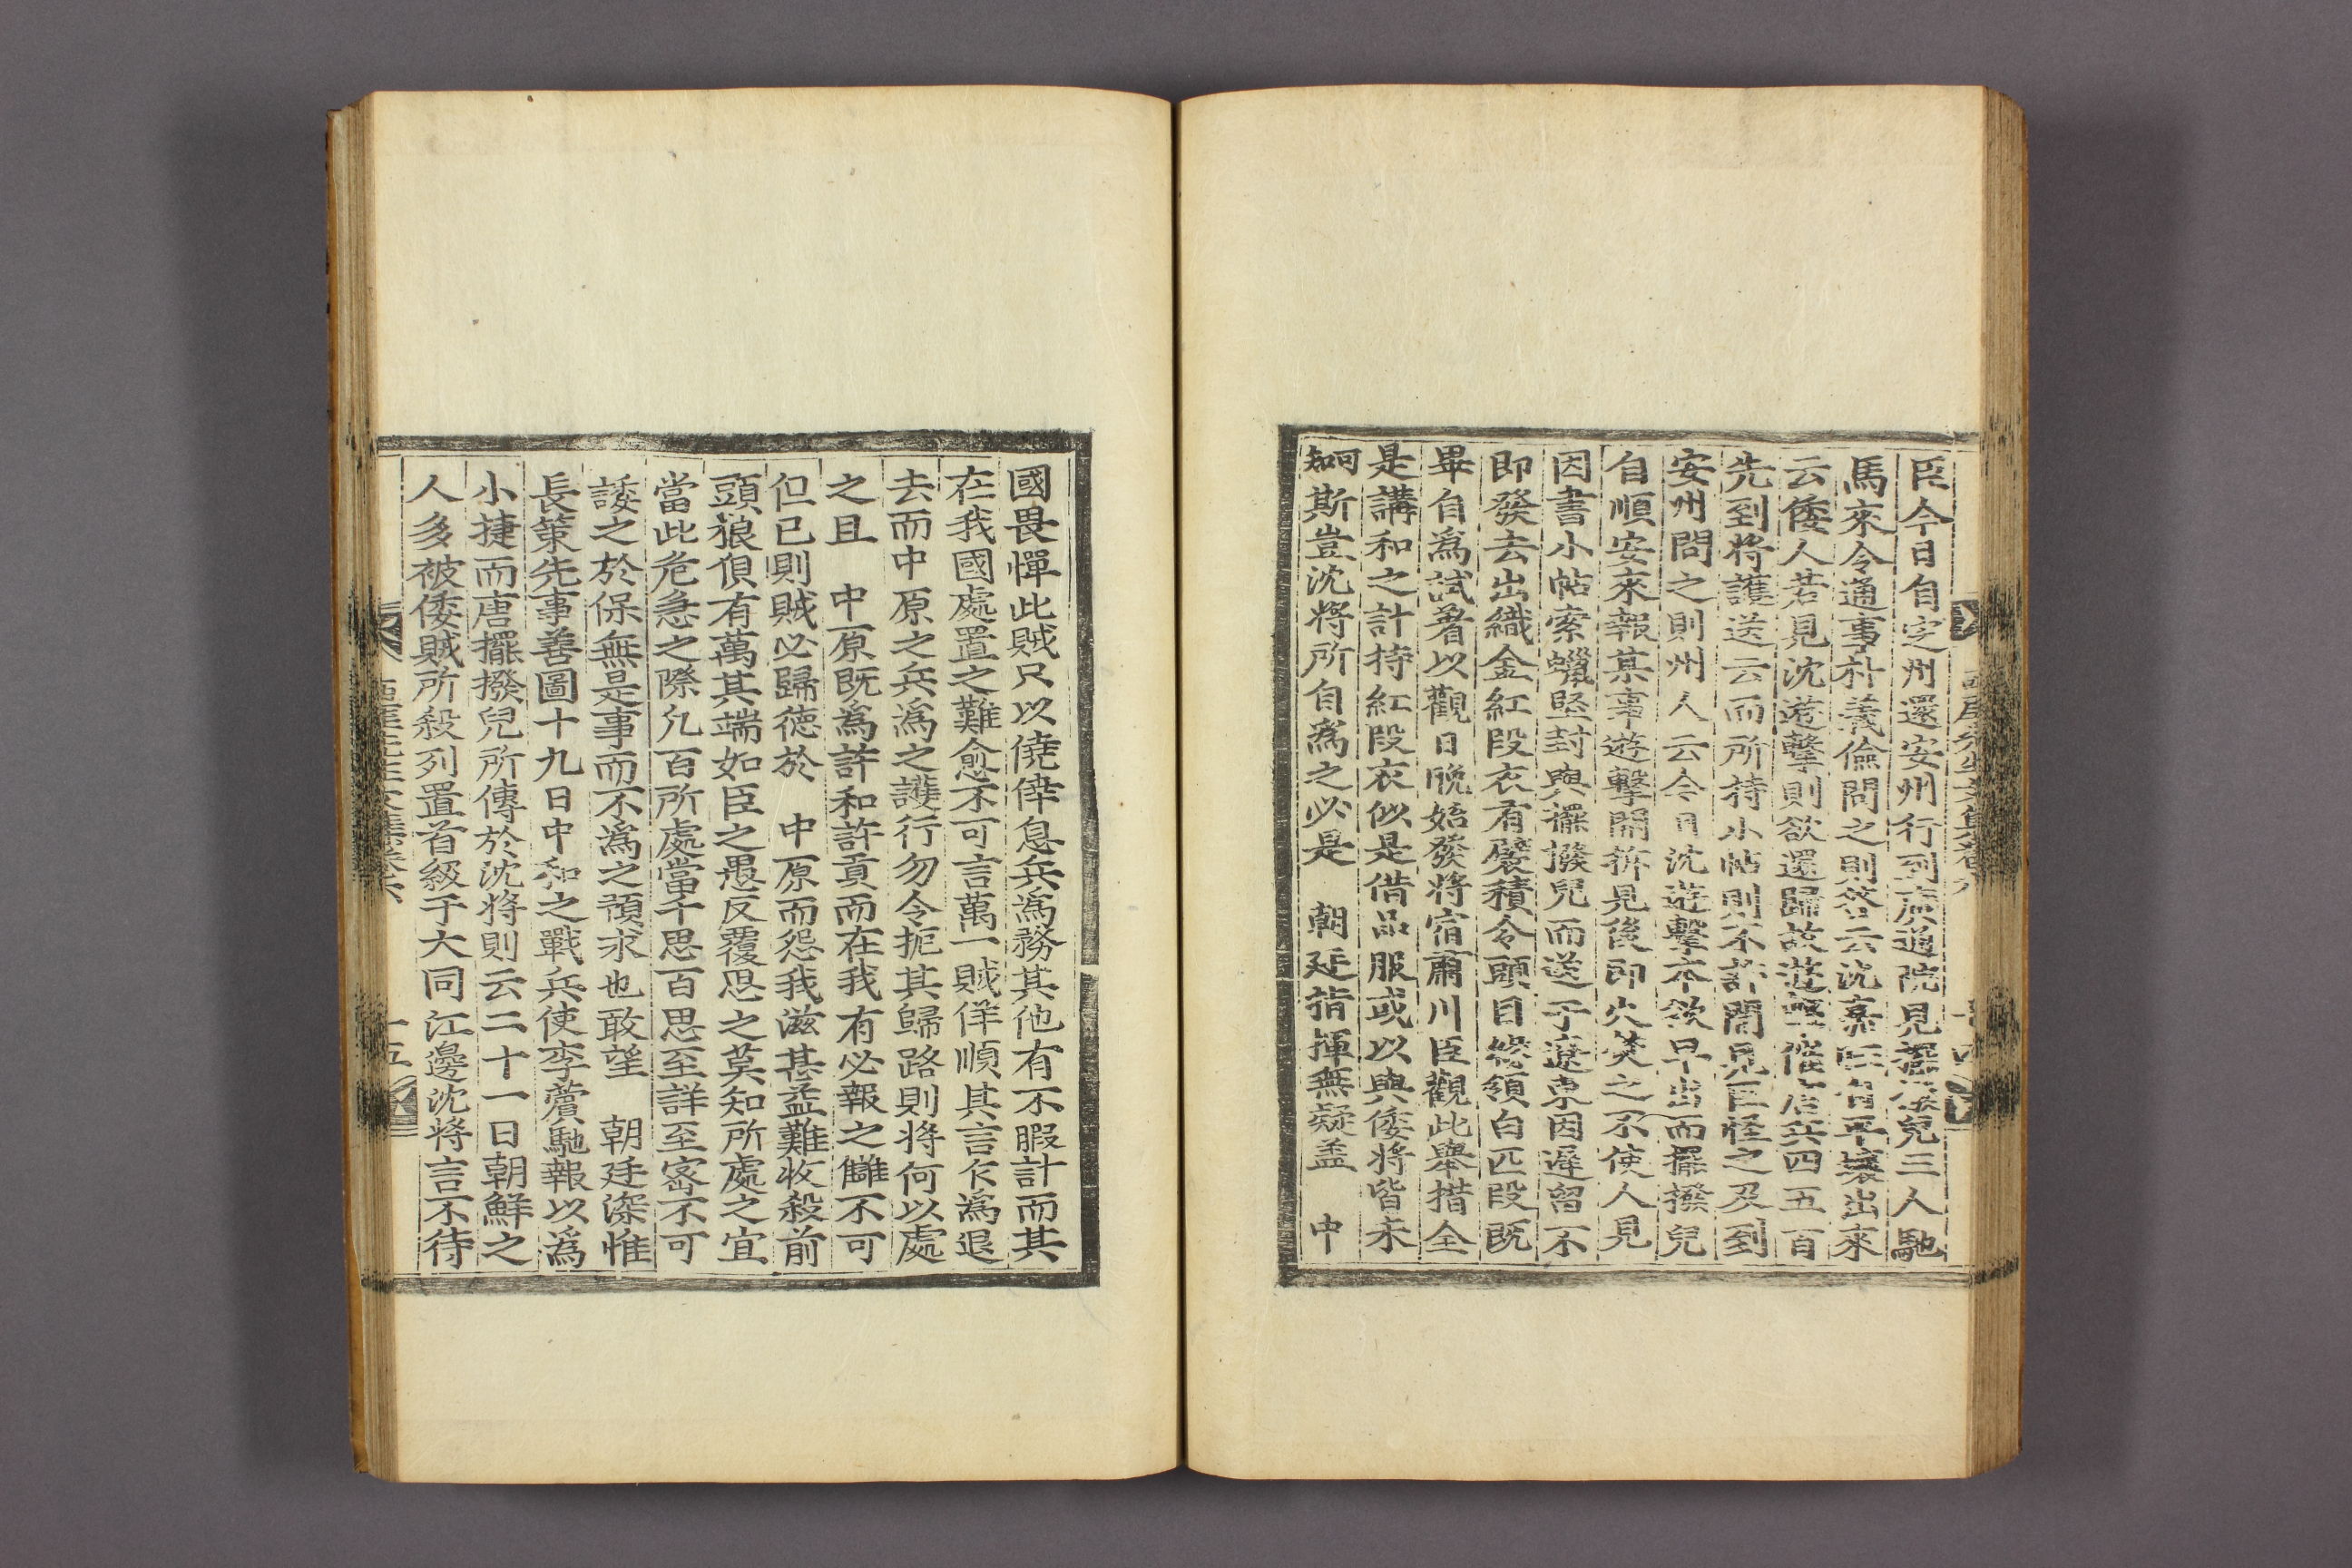 臣今日自定州還安州行到廣通院見擺撥兒三人馳
馬來令通事朴義儉問之則答云沈嘉旺自平壤出來
云倭人若見沈遊擊則欲還歸故遊擊催唐兵四五百
先到將護送云而所持小帖則不許開見臣怪之及到
安州問之則州人云今日沈遊擊本欲早出而擺撥兒
自順安來報某事遊擊開拆見後即火焚之不使人見
因書小帖索蠟堅封與擺撥兒而送于遼東因遲留不
即發去出織金紅段衣有襞積令頭目縫領白匹段既
畢自爲試着以觀日晚始發將宿肅川臣觀此擧措全
是講和之計持紅段衣似是借品服或以與倭將皆未
可知斯豈沈將所自爲之必是　朝廷指揮無疑盖　中
國畏憚此賊只以僥倖息兵爲務其他有不暇計而其
在我國處置之難愈不可言萬一賊佯順其言乍爲退
去而中原之兵爲之護行勿令扼其歸路則將何以處
之且　中原既爲許和許貢而在我有必報之讎不可
但已則賊必歸德於　中原而怨我滋甚益難收殺前
頭狼狽有萬其端如臣之愚反覆思之莫知所處之宜
當此危急之際凡百所處當千思百思至詳至密不可
諉之於保無是事而不爲之預求也敢望　朝廷深惟
長策先事善圖十九日中和之戰兵使李薲馳報以爲
小捷而唐擺撥兒所傳於沈將則云二十一日朝鮮之
人多被倭賊所殺列置首級于大同江邊沈將言不待